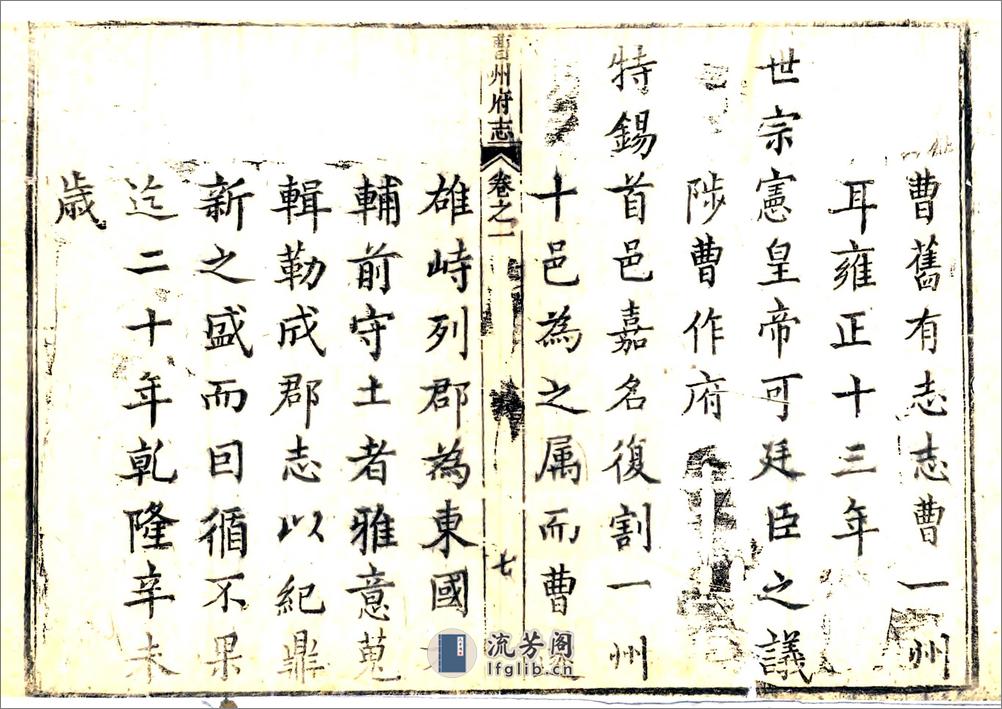 曹舊有志志曹一州
耳雍正十三年
世宗憲皇帝可廷臣之議
陟曹作府
特錫首邑嘉名復割一州
十邑為之属而曹
曹州府志
卷之一
七
雄峙列郡為東國
輔前守土者雅意蒐
輯勒成郡志以紀鼎
新之盛而囙循不果
迄二十年乾隆辛未
歲
流芳阁
lfglib.cn